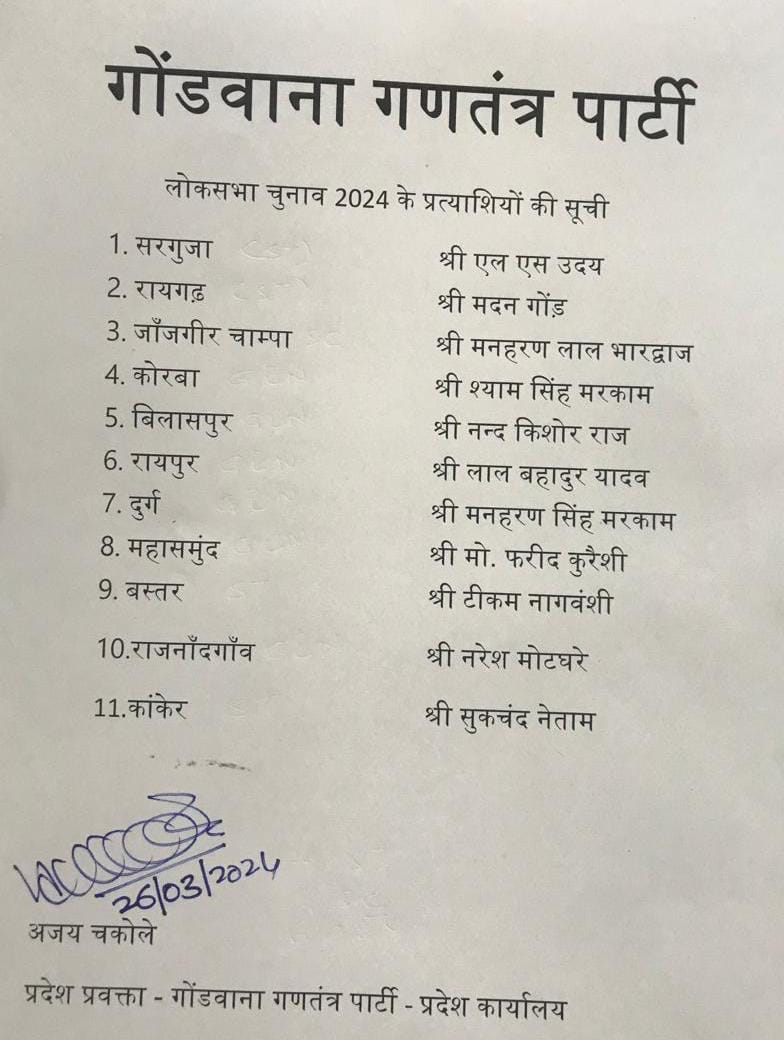 गोंडवाना गणतंत्र पार्टी
लोकसभा चुनाव 2024 के प्रत्याशियों की सूची
1. सरगुजा श्री एल एस उदय
2. रायगढ़ श्री मदन गोंड़
3. जाँजगीर चाम्पा श्री मनहरण लाल भारद्वाज
4. कोरबा श्री श्याम सिंह मरकाम
5. बिलासपुर श्री नन्द किशोर राज
6. रायपुर श्री लाल बहादुर यादव
7. दुर्ग श्री मनहरण सिंह मरकाम
8. महासमुंद श्री मो. फरीद कुरैशी
9. बस्तर श्री टीकम नागवंशी
10.राजनाँदगाँव श्री नरेश मोटघरे
11.कांकेर श्री सुकचंद नेताम
26/03/2024
अजय चकोले
प्रदेश प्रवक्ता - गोंडवाना गणतंत्र पार्टी - प्रदेश कार्यालय